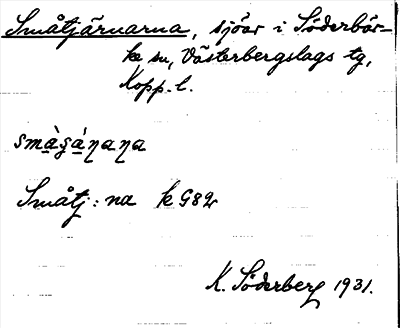 Småtjärnarna, sjöar i Söderbär-
ke sn, Västerbergslags tg,
Kopp. l.
Småtj:na k G82
K. Söderberg 1931.